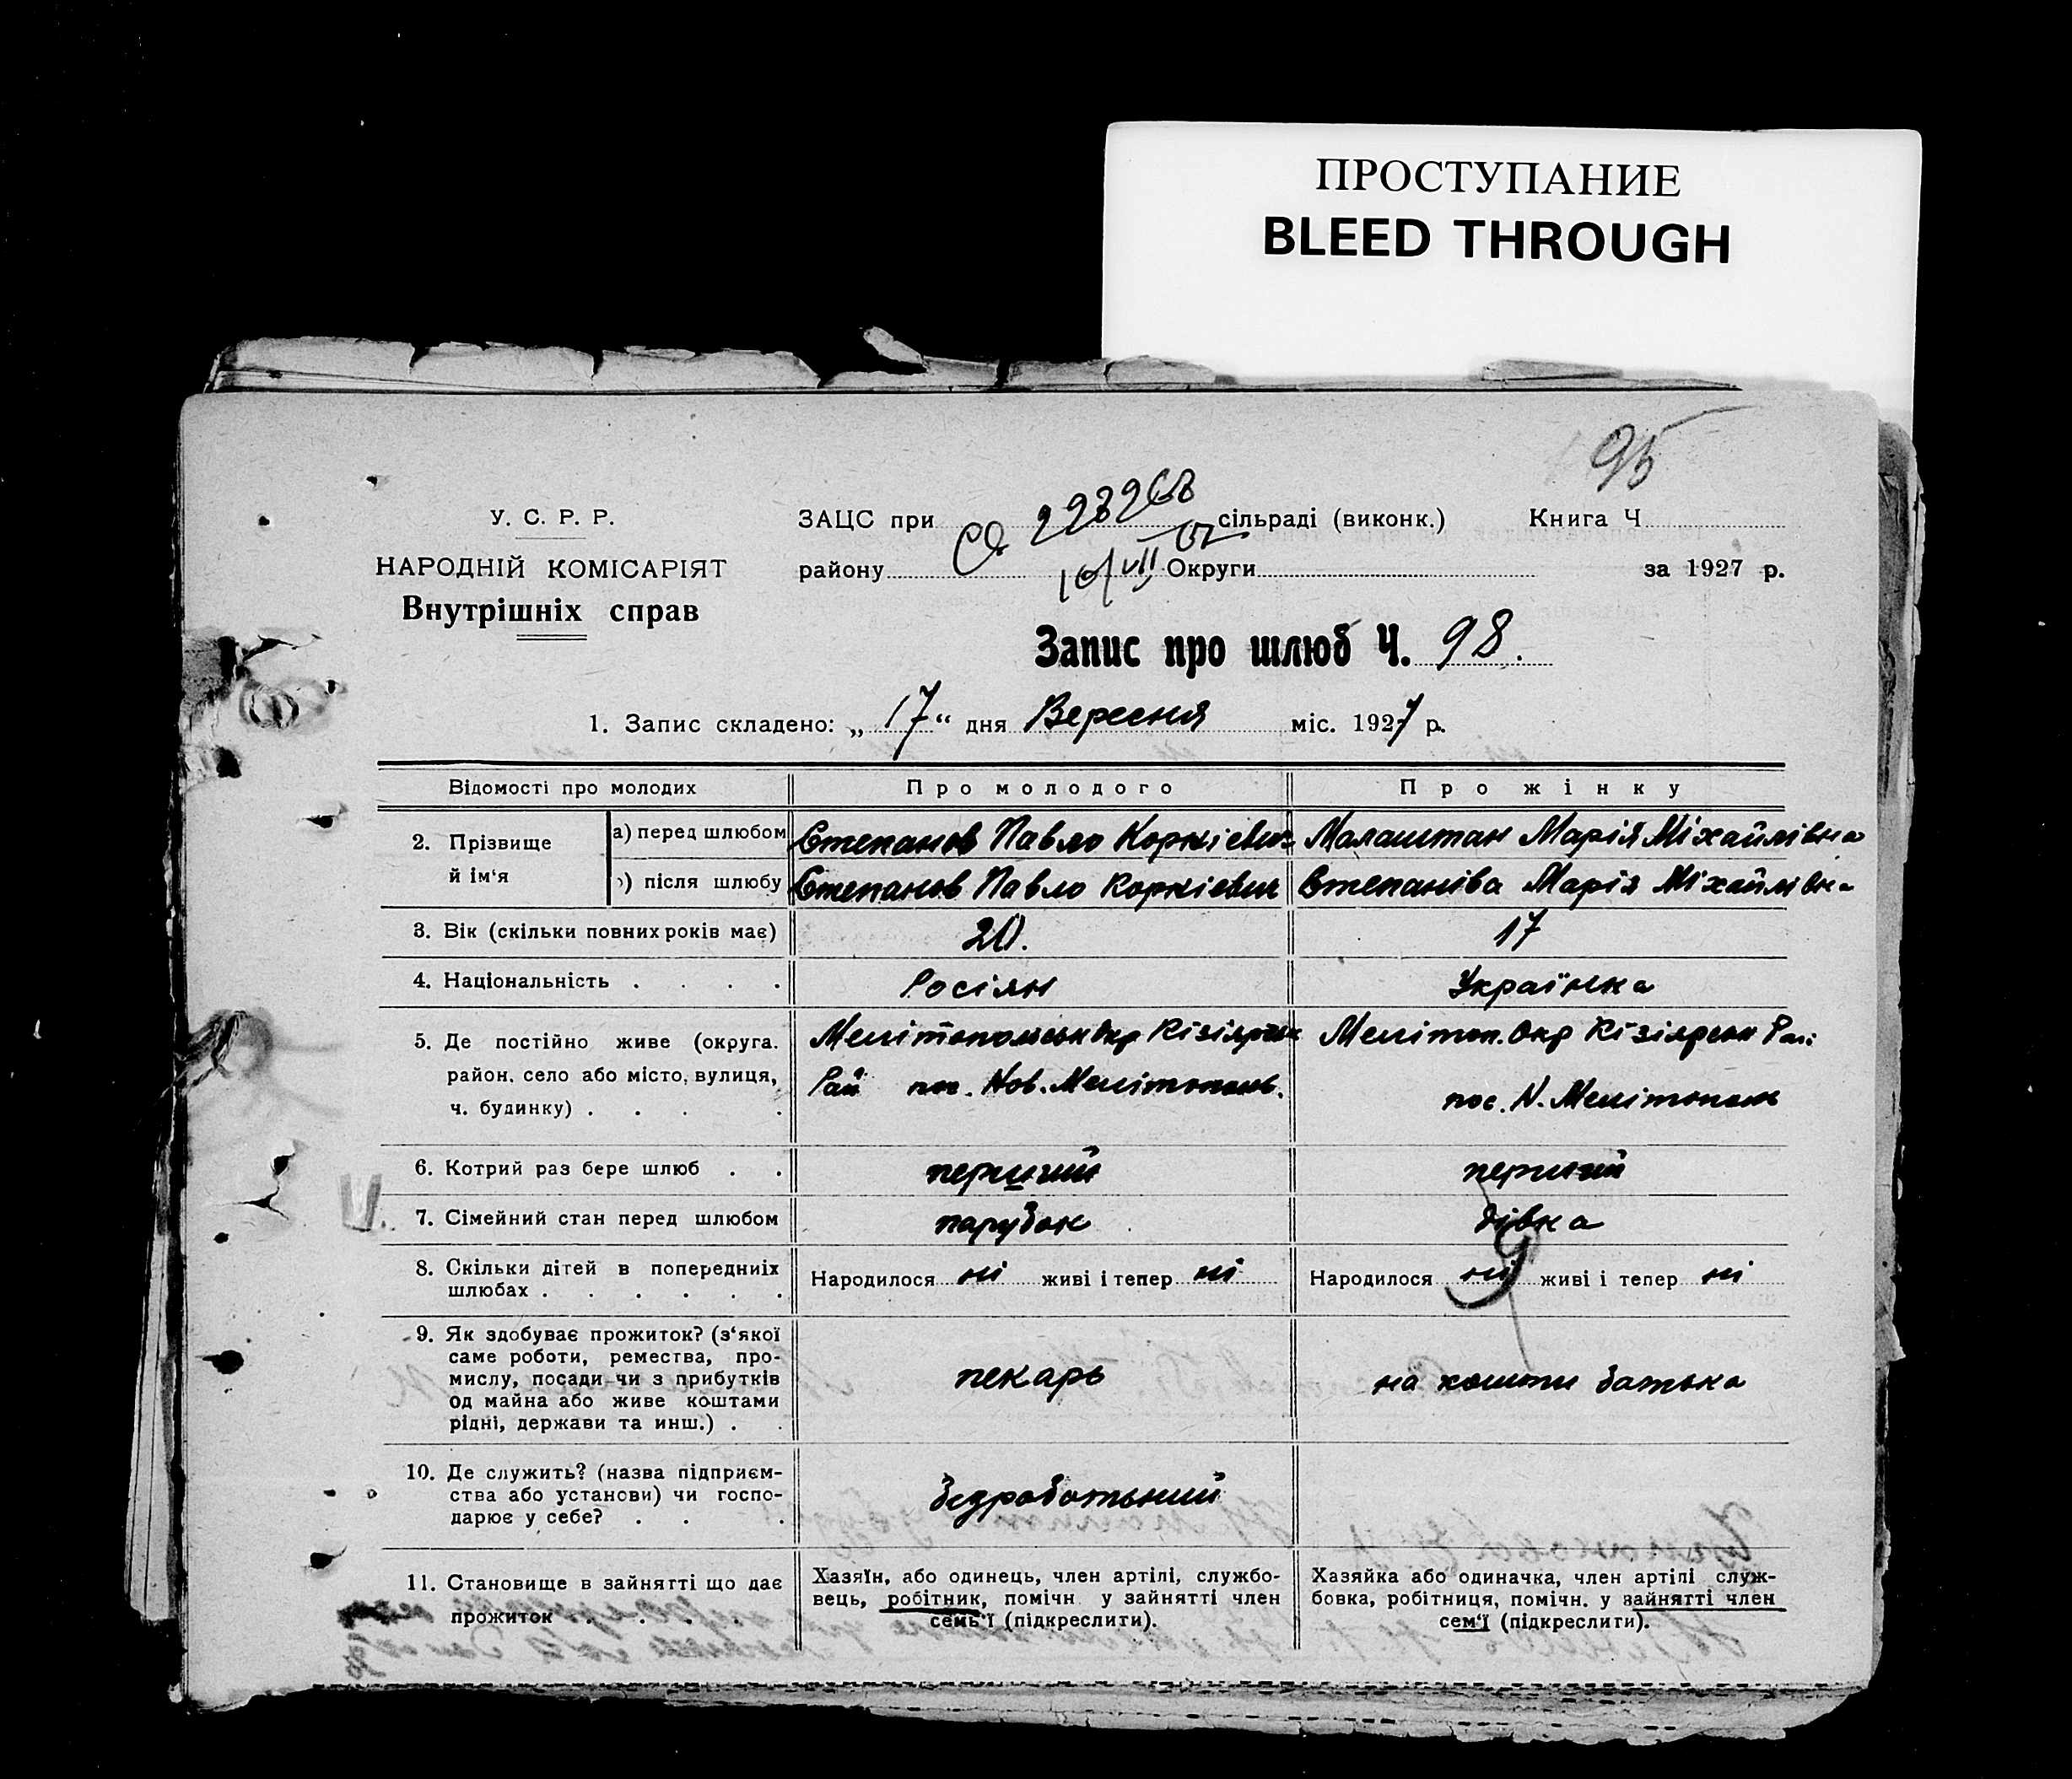 ПРОСТУПАНИЕ
BLEED THROUGH
95
У. С. Р. Р.
НАРОДНІЙ КОМІСАРІЯТ
Внутрішніх справ
ЗАЦС при сільраді (виконк.) Книга Ч
району Округи за 1927 р.
Запис про шлюб Ч. 98.
1. Запис складено: „ 17 “ дня Вересня міс. 1927 р.
Відомості про молодих Про молодого Про жінку
2. Прізвище й ім‘я
а) перед шлюбом Степанов Павло Малаштан Марія Міхайлівна
) після шлюбу Степанов Павло Степаніва Марія Міхайлівна
3. Вік (скільки повних років має) 20. 17
4. Національність . . . . Росіян Українка
5. Де постійно живе (округа. район. село або місто, вулиця, ч. будинку) . . . .
Мелітопольськ Окр Кізіярськ
Рай пос. Нов. Мелітополь.
Мелітоп. Окр Кізіярськ Рай
пос. Н. Мелітополь
6. Котрий раз бере шлюб . . перший перший
7. Сімейний стан перед шлюбом парубок дівка
8. Скільки дітей в попередниіх шлюбах . . . . . .
Народилося ні живі і тепер ні
Народилося ні живі і тепер ні
9. Як здобуває прожиток? (з‘якої
саме роботи, ремества, про-
мислу, посади чи з прибутків
од майна або живе коштами
рідні, держави та инш.) . .
пекарь
на кошти батька
10. Де служить? (назва підприєм-
ства або установи) чи госпо-
дарює у себе? . . .
безработьний
11. Становище в зайнятті що дає
прожиток . . . .
Хазяїн, або одинець, член артілі, службо-
вець, робітник, помічн у зайнятті член
семь‘ї (підкреслити).
Хазяйка або одиначка, член артілі служ-
бовка, робітниця, помічн. у зайнятті член
сем‘ї (підкреслити).